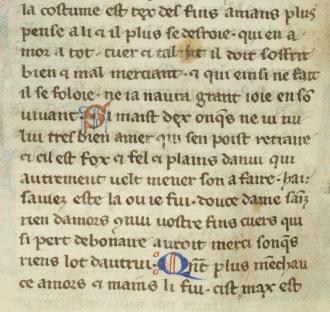 la costume est tex des fins amans plus
pense a li ⁊ il plus se desroie· qui en a
mor a tot cuer ⁊ talent il doit soffrir
bien ⁊ mal merciant· ⁊ qui einsi ne fait
il se foloie· ne ia naura grant ioie en sō
uiuant· Si maist dex onqes ne ui nu
lui tres bien amer qui sen poist retraire
⁊ cil est fox ⁊ fel ⁊ plains danui qui
autrement uelt mener son afaire· hai·
sauiez este la ou ie fui· douce dame sanz
rien damors ꝯnui uostre fins cuers qui
si pert debonaire auroit merci sonqes
riens lot dautrui· Qn̄t plus mēchau
ce amors ⁊ mains li fui· cist max est